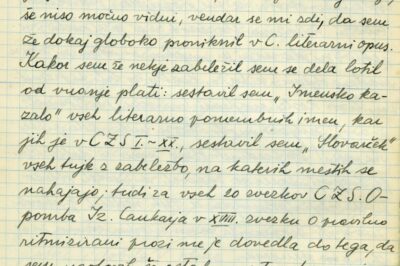 še niso močno vidni, vendar se mi zdi, da sem
že dokaj globoko proniknil v C. literarni opus.
Kakor sem že nekje zabeležil sem se dela lotil
od vnanje plati: sestavil sem „Imensko ka-
zalo" vseh literarno pomembnih imen, kar
jih je v C Z S I. - XX., sestavil sem „Slovarček"
vseh tujk z zabeležbo, na katerih mestih se
nahajajo; tudi za vseh 20 zvezkov C Z S. O-
pomba Iz. Cankarja v XVIII. zvezku o pravilno
ritmizirani prozi me je dovedla do tega, da